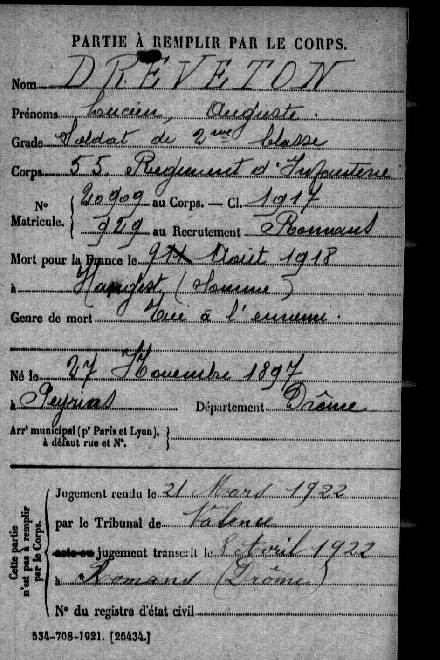 PARTIE À REMPLIR PAR LE CORPS.
Nom DREVETON
Prénoms Lucien, Auguste.
Grade Soldat de 2me Classe
Corps 55 Régiment d'Infanterie
N° Matricule. { 20909 au Corps. — Cl. 1917
929 au Recrutement Romans
Mort pour la France le 9 Août 1918
à Hangest (Somme)
Genre de mort Tué à l'ennemi.
Né le 27 Novembre 1897
à Peyrins Département Drôme
Arrt municipal (pr Paris et Lyon), à défaut rue et N°. }
Cette partie n'est pas à remplir par le Corps.
Jugement rendu le 21 Mars 1922
par le Tribunal de Valence
acte ou jugement transcrit le 8 Avril 1922
à Romans (Drôme)
N° du registre d'état civil
534-708-1921. [26434.]